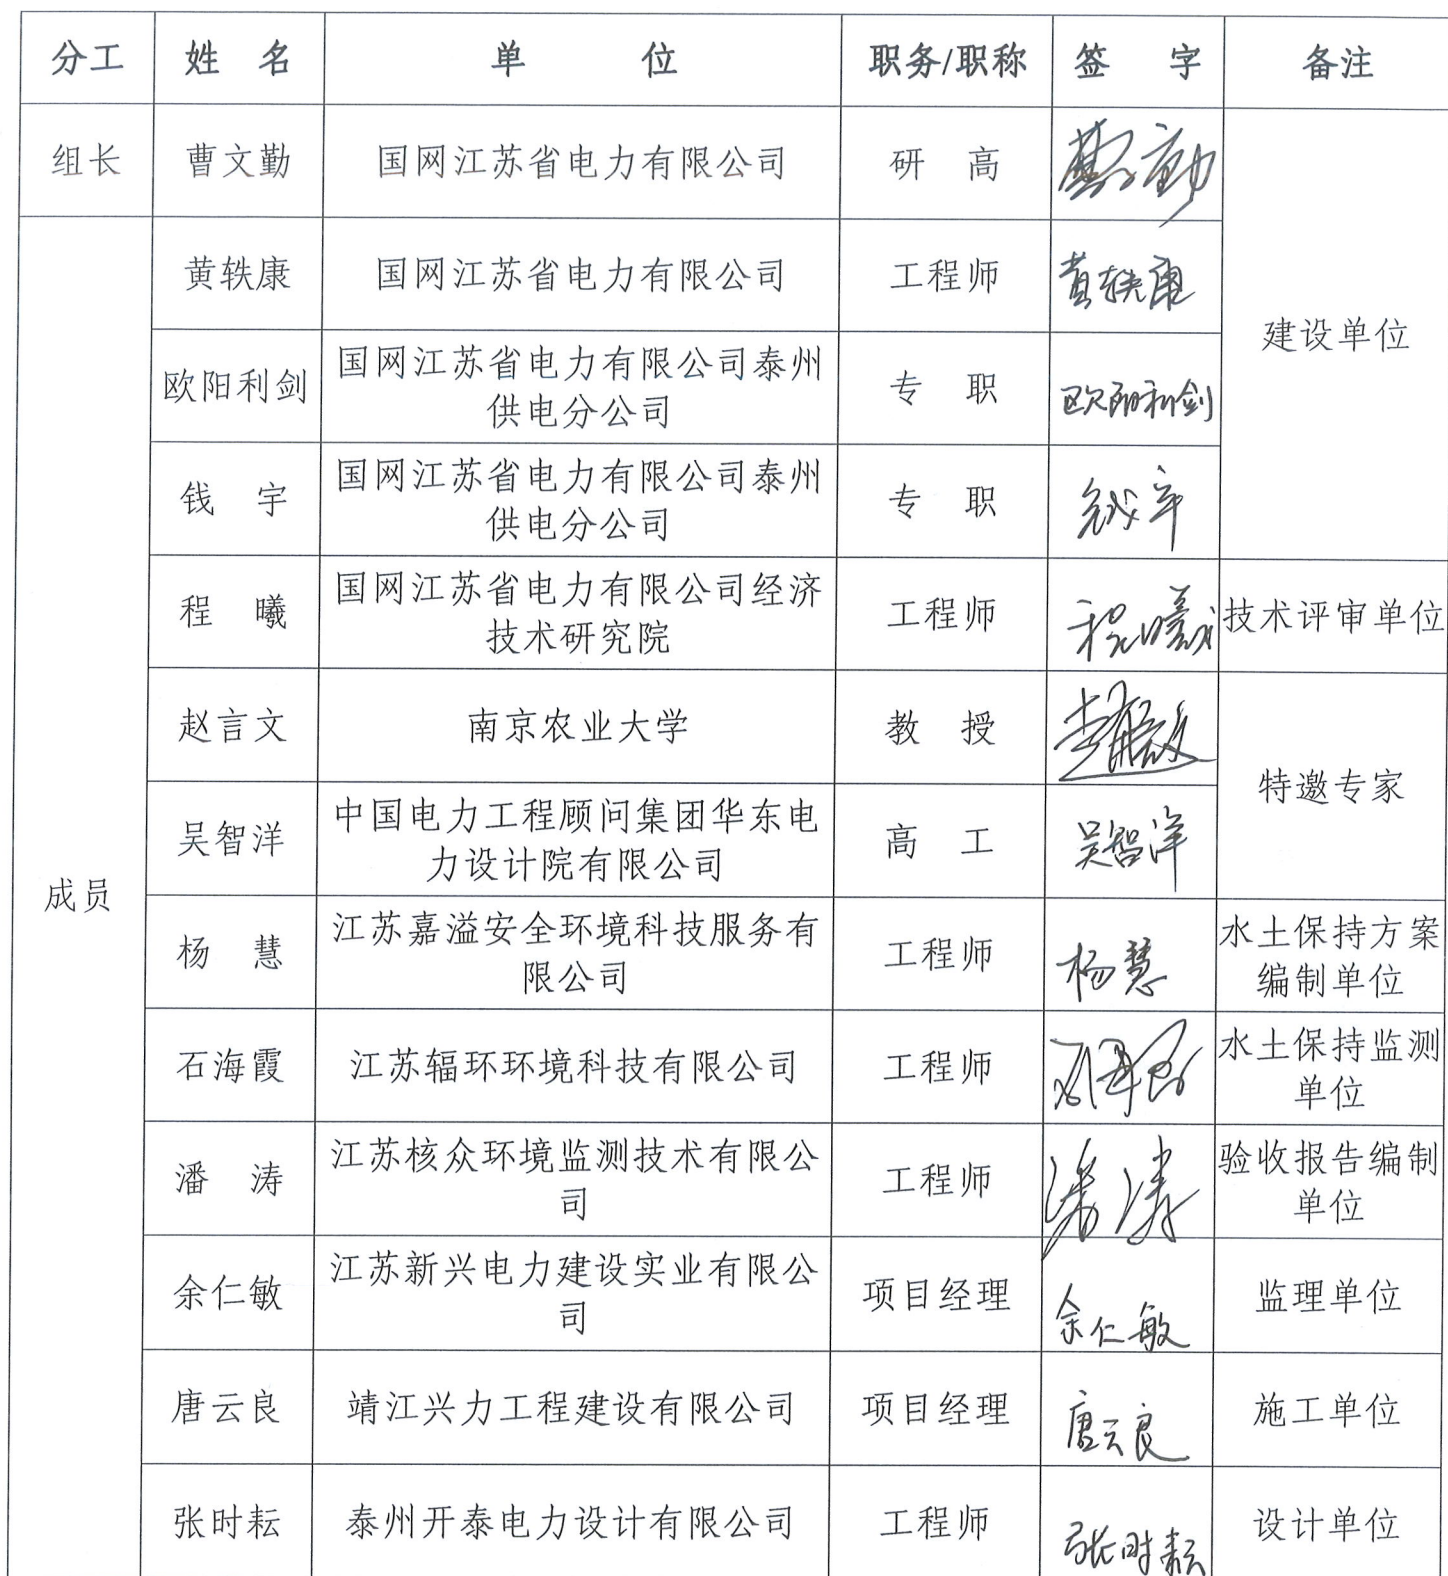 分工 姓 名 单 位 职务/职称 签 字 备注
组长 曹文勤 国网江苏省电力有限公司 研 高 曹文勤
黄轶康 国网江苏省电力有限公司 工程师 黄轶康
建设单位
欧阳利剑 国网江苏省电力有限公司泰州
供电分公司 专 职 欧阳利剑
钱 宇 国网江苏省电力有限公司泰州
供电分公司 专 职 钱宇
程 曦 国网江苏省电力有限公司经济
技术研究院 工程师 程曦 技术评审单位
赵言文 南京农业大学 教 授 赵言文
特邀专家
吴智洋 中国电力工程顾问集团华东电
力设计院有限公司 高 工 吴智洋
成员
杨 慧 江苏嘉溢安全环境科技服务有
限公司 工程师 杨慧 水土保持方案
编制单位
石海霞 江苏辐环环境科技有限公司 工程师 石海霞 水土保持监测
单位
潘 涛 江苏核众环境监测技术有限公
司 工程师 潘涛 验收报告编制
单位
余仁敏 江苏新兴电力建设实业有限公
司 项目经理 余仁敏 监理单位
唐云良 靖江兴力工程建设有限公司 项目经理 唐云良 施工单位
张时耘 泰州开泰电力设计有限公司 工程师 张时耘 设计单位